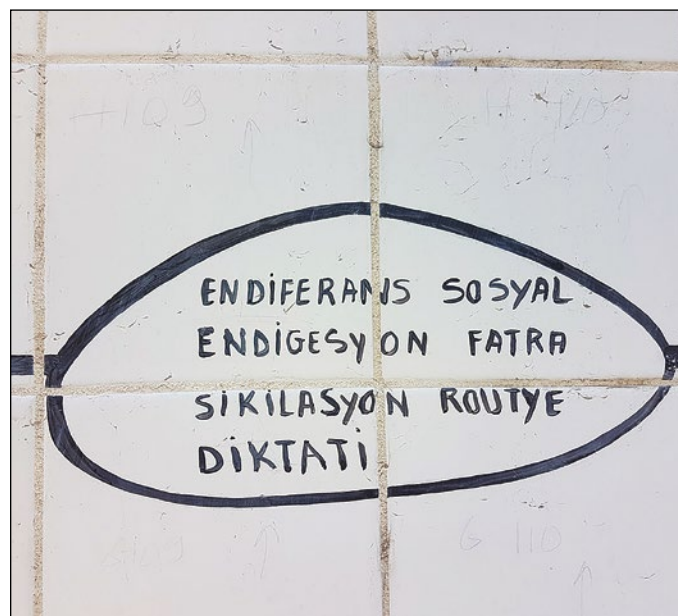 ENDİFERANS SOSYAL
ENDİGESYON FATRA
SİKİLASYON ROUTYE
DİKTATİ